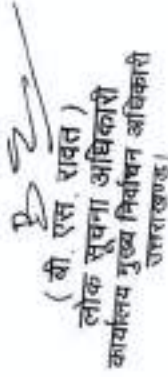 ( बी. एस. रावत )
लोक सूचना अधिकारी
कार्यालय मुख्य निर्वाचन अधिकारी
उत्तराखण्ड।